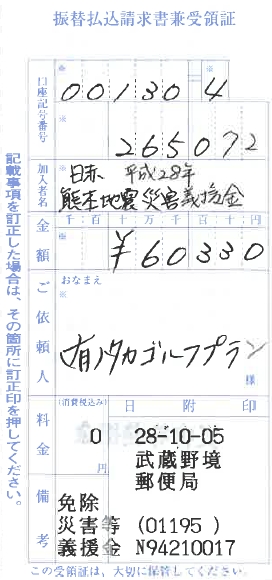 振替払込請求書兼受領証
口座記号番号
00130 4
265072
加入者名
日赤 平成28年
熊本地震災害義援金
金額
千 百 十 万 千 百 十 円
¥60330
ご依頼人
おなまえ
㈲タカゴルフプラン
様
料金
(消費税込み)
0
円
日附印
28-10-05
武蔵野境
郵便局
備考
免除
災害等 (01195 )
義援金 N94210017
記載事項を訂正した場合は、その箇所に訂正印を押してください。
この受領証は、大切に保管してください。